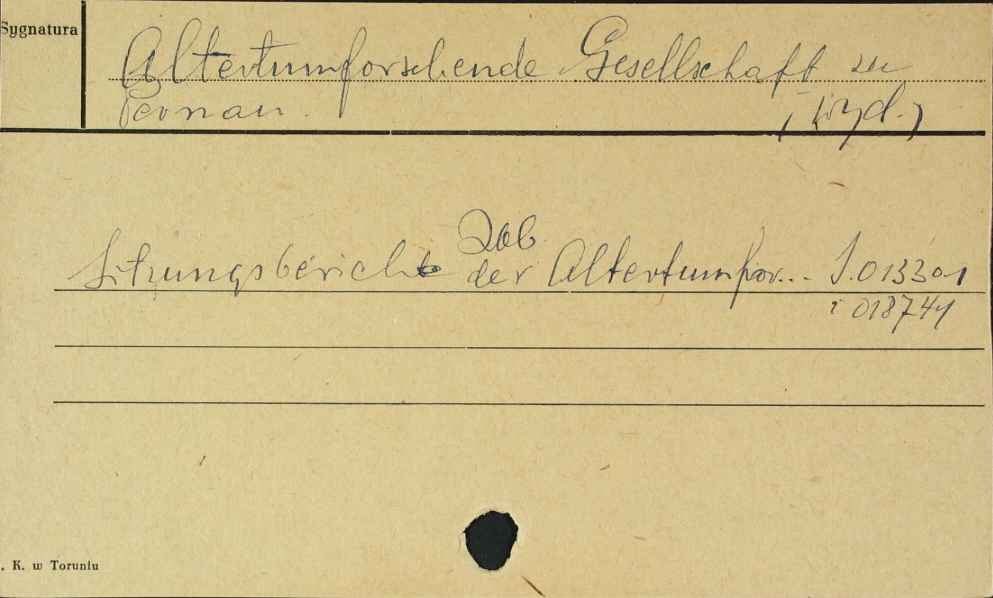 Sygnatura
Altertumforschende Gesellschaft zu
Pernau. (wyd.)
Zob
Sitzungsberichte der Altertumfor... S.013301
i 018741
. K. w Toruniu